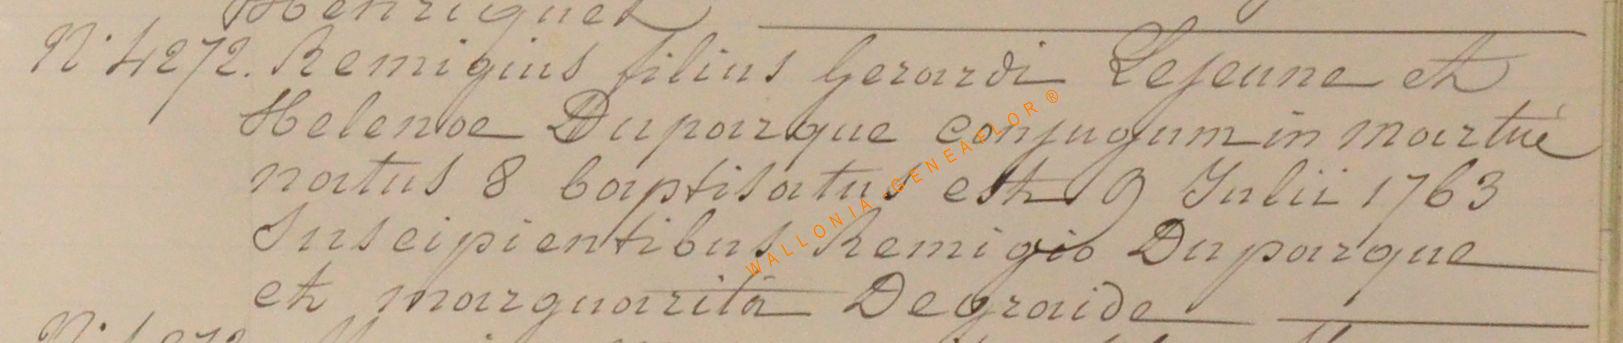 Henriquet
N. 4272. Remigius filius Gerardi Lejeune et
Helenæ Duparque conjugum in martué
natus 8 baptisatus est 9 Julii 1763
Suscipientibus Remigio Duparque
et marguarita Degraide
WALLONIA GENEAFLOR ®